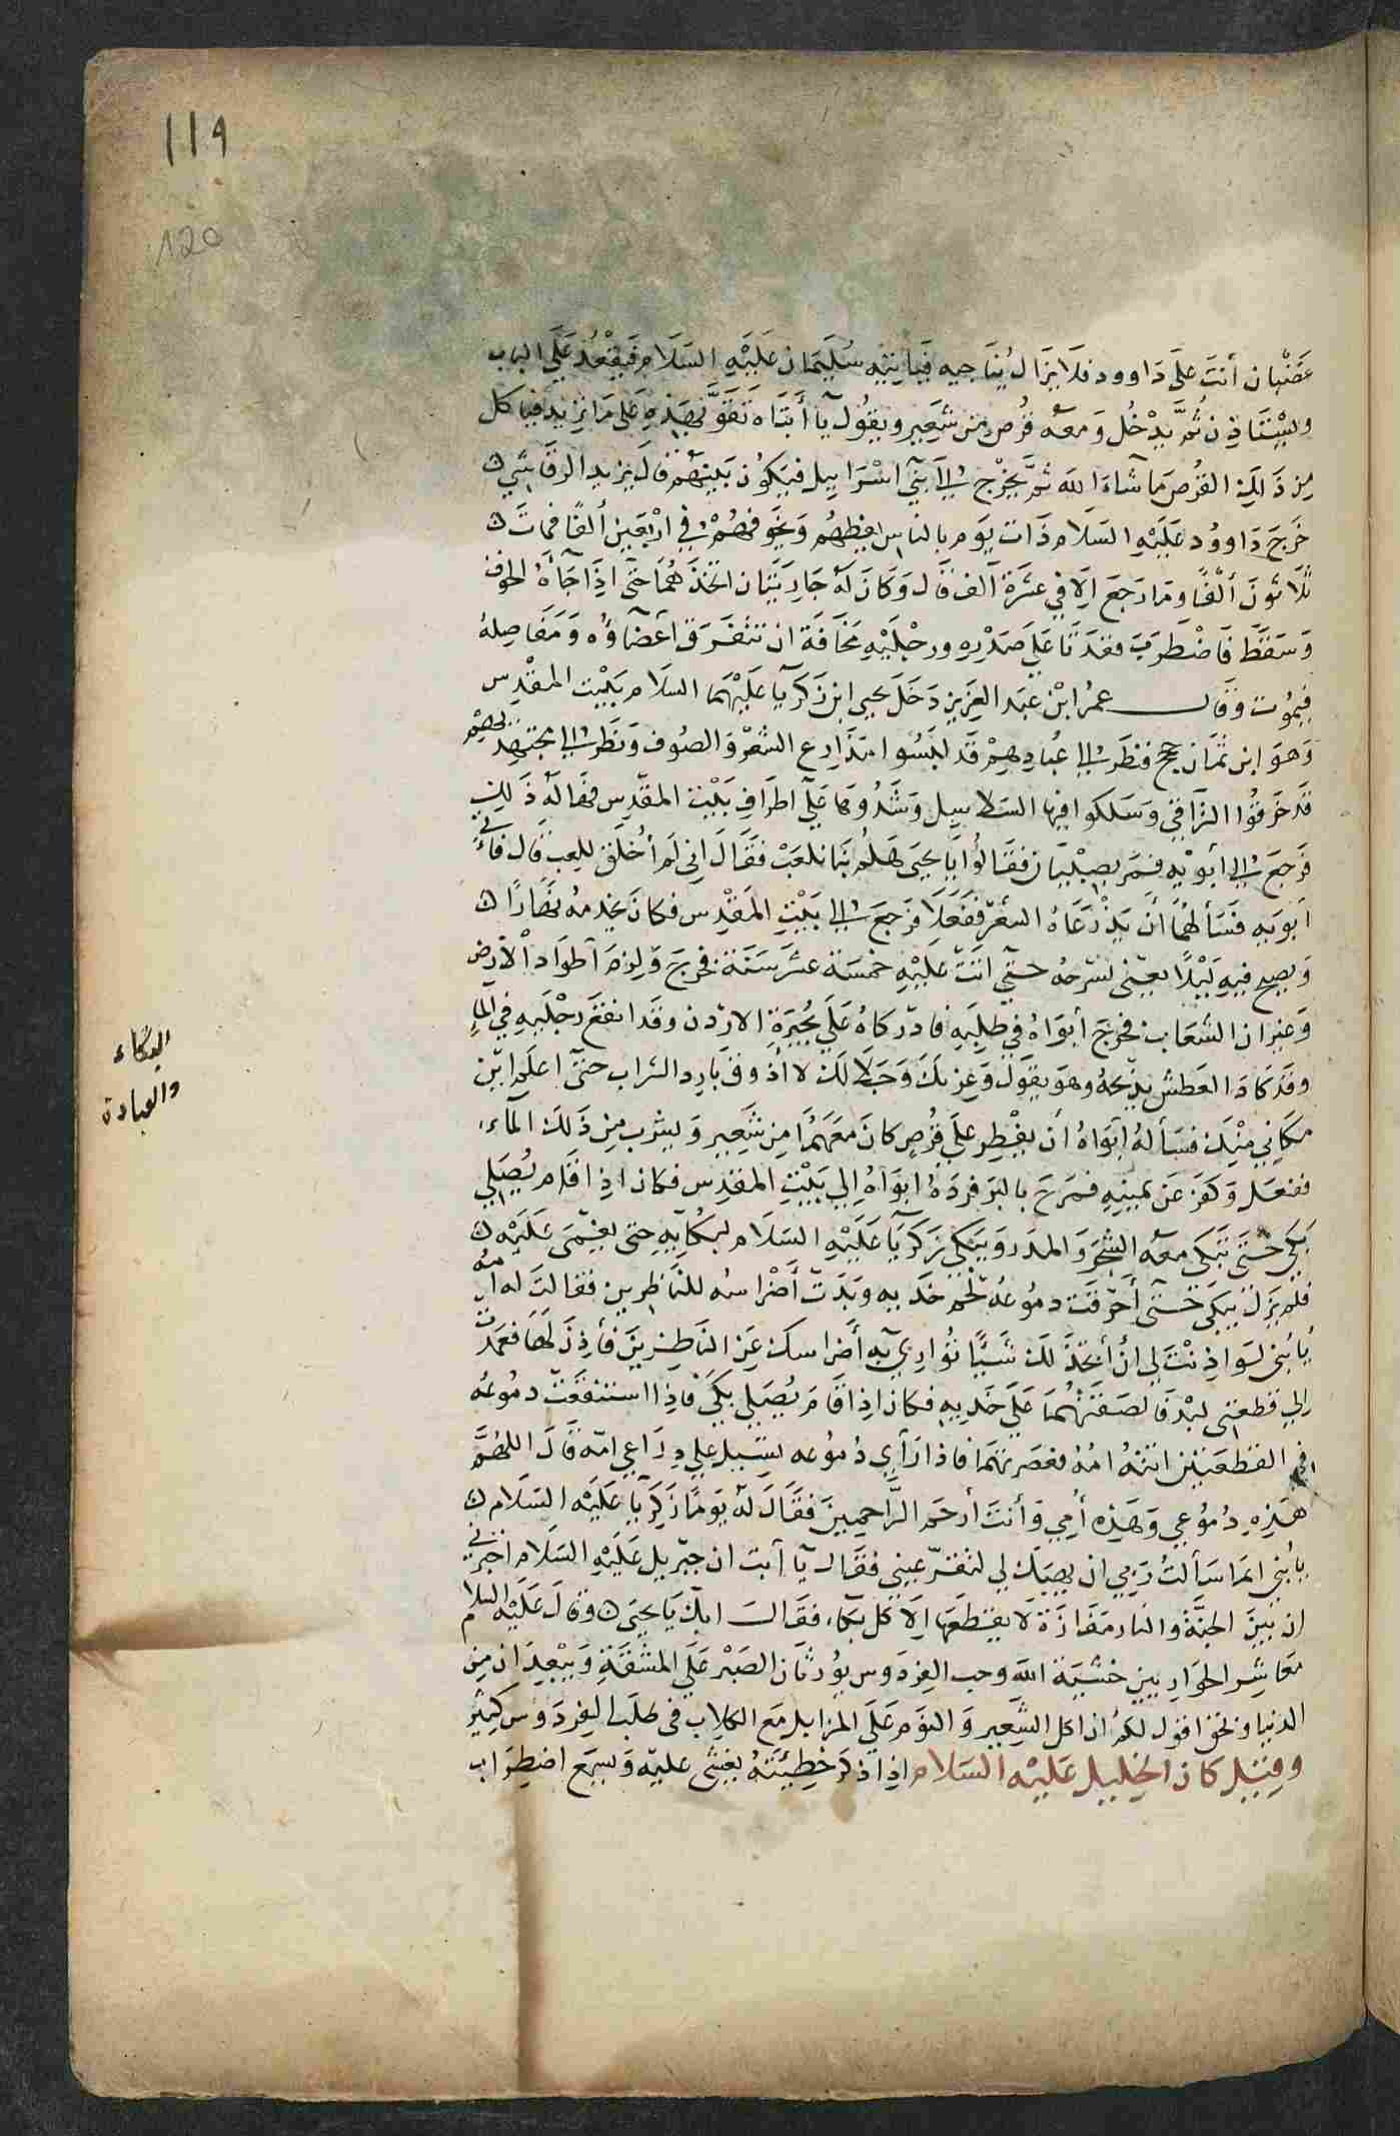 ١١٩
120
غضبان أنت على داوود فلا يزال يناجيه فيأتيه سليمان عليه السلام فيقعد على الباب
ويستاذن ثم يدخل ومعه قرص من شعير ويقول يا أبتاه تقو بهذه على ما تريد فياكل
من ذلك القرص ما شاء الله ثم يخرج الى بني اسرائيل فيكون بينهم قال يزيد الرقاشي
خرج داوود عليه السلام ذات يوم بالناس يعظهم ويخوفهم في اربعين ألفا فمات
ثلاثون ألفا وما رجع الا في عشرة آلف قال وكان له جاريتان اتخذهما حتى اذا جاه الخوف
وسقط فاضطرب قعدتا على صدره ورجليه مخافة ان تتفرق اعضاؤه ومفاصله
فيموت وقال عمر ابن عبد العزيز دخل يحيى ابن زكريا عليهما السلام بيت المقدس
وهو ابن ثمان حجج فنظر الى عبادهم قد لبسوا مدارع الشعر والصوف ونظر الى مجتهديهم
قد خرقوا التراقي وسلكوا فيها السلاسل وشدوها على اطراف بيت المقدس فهاله ذلك
فرجع الى أبويه فمر بصبيان فقالوا يا يحيى هلم بنا نلعب فقال اني لم أخلق للعب قال فأتى
ابويه فسألهما أن يدرعاه الشعر ففعلا فرجع الى بيت المقدس فكان يخدمه نهارا
ويصبح فيه ليلا يعني نسرحه حتى اتت عليه خمسة عشر سنة فخرج ولزم أطواد الأرض
وغيران الشعاب فخرج أبواه في طلبه فادركاه على بحيرة الاردن وقد انقع رجليه في الماء
وقد كاد العطش يذبحه وهو يقول وعزتك وجلالك لا اذوق بارد الشراب حتى اعلم اين
مكاني منك فسأله ابواه أن يفطر على قرص كان معهما من شعير ويشرب من ذلك الماء
ففعل وكفر عن يمينه فمدح بالبر فرده ابواه الى بيت المقدس فكان اذا قام يصلي
بكى حتى يبكي معه الشجر والمدر ويبكي زكريا عليه السلام لبكائه حتى يغمى عليه
فلم يزل يبكي حتى أحرقت دموعه لحم خديه وبدت أضراسه للناظرين فقالت له امه
يا بني لو اذنت لي أن أتخذ لك شيئا تواري به أضراسك عن الناظرين فأذن لها فعمدت
الى قطعتي لبد فالصقتهما على خديه فكان اذا قام يصلي بكى فاذا استنقعت دموعه
في القطعتين اتته امه فعصرتهما فاذا رأى دموعه تسيل على ذراعي امه قال اللهم
هذه دموعي وهذه أمي وأنت أرحم الراحمين فقال له يوما زكريا عليه السلام
يا بني انما سألت ربي ان يهبك لي لتقر عيني فقال يا أبت ان جبريل عليه السلام اخبرني
ان بين الجنة والنار مفازة لا يقطعها الا كل بكاء، فقال ابك يا يحيى وقال عليه السلام
معاشر الحواريين خشية الله وحب الفردوس يورثان الصبر على المشقة ويبعدان من
الدنيا وبحق اقول لكم ان اكل الشعير والنوم على المزابل مع الكلاب في طلب الفردوس كثير
وقيل كان الخليل عليه السلام اذا ذكر خطيئته يغشى عليه ويسمع اضطراب
البكاء
والعبادة